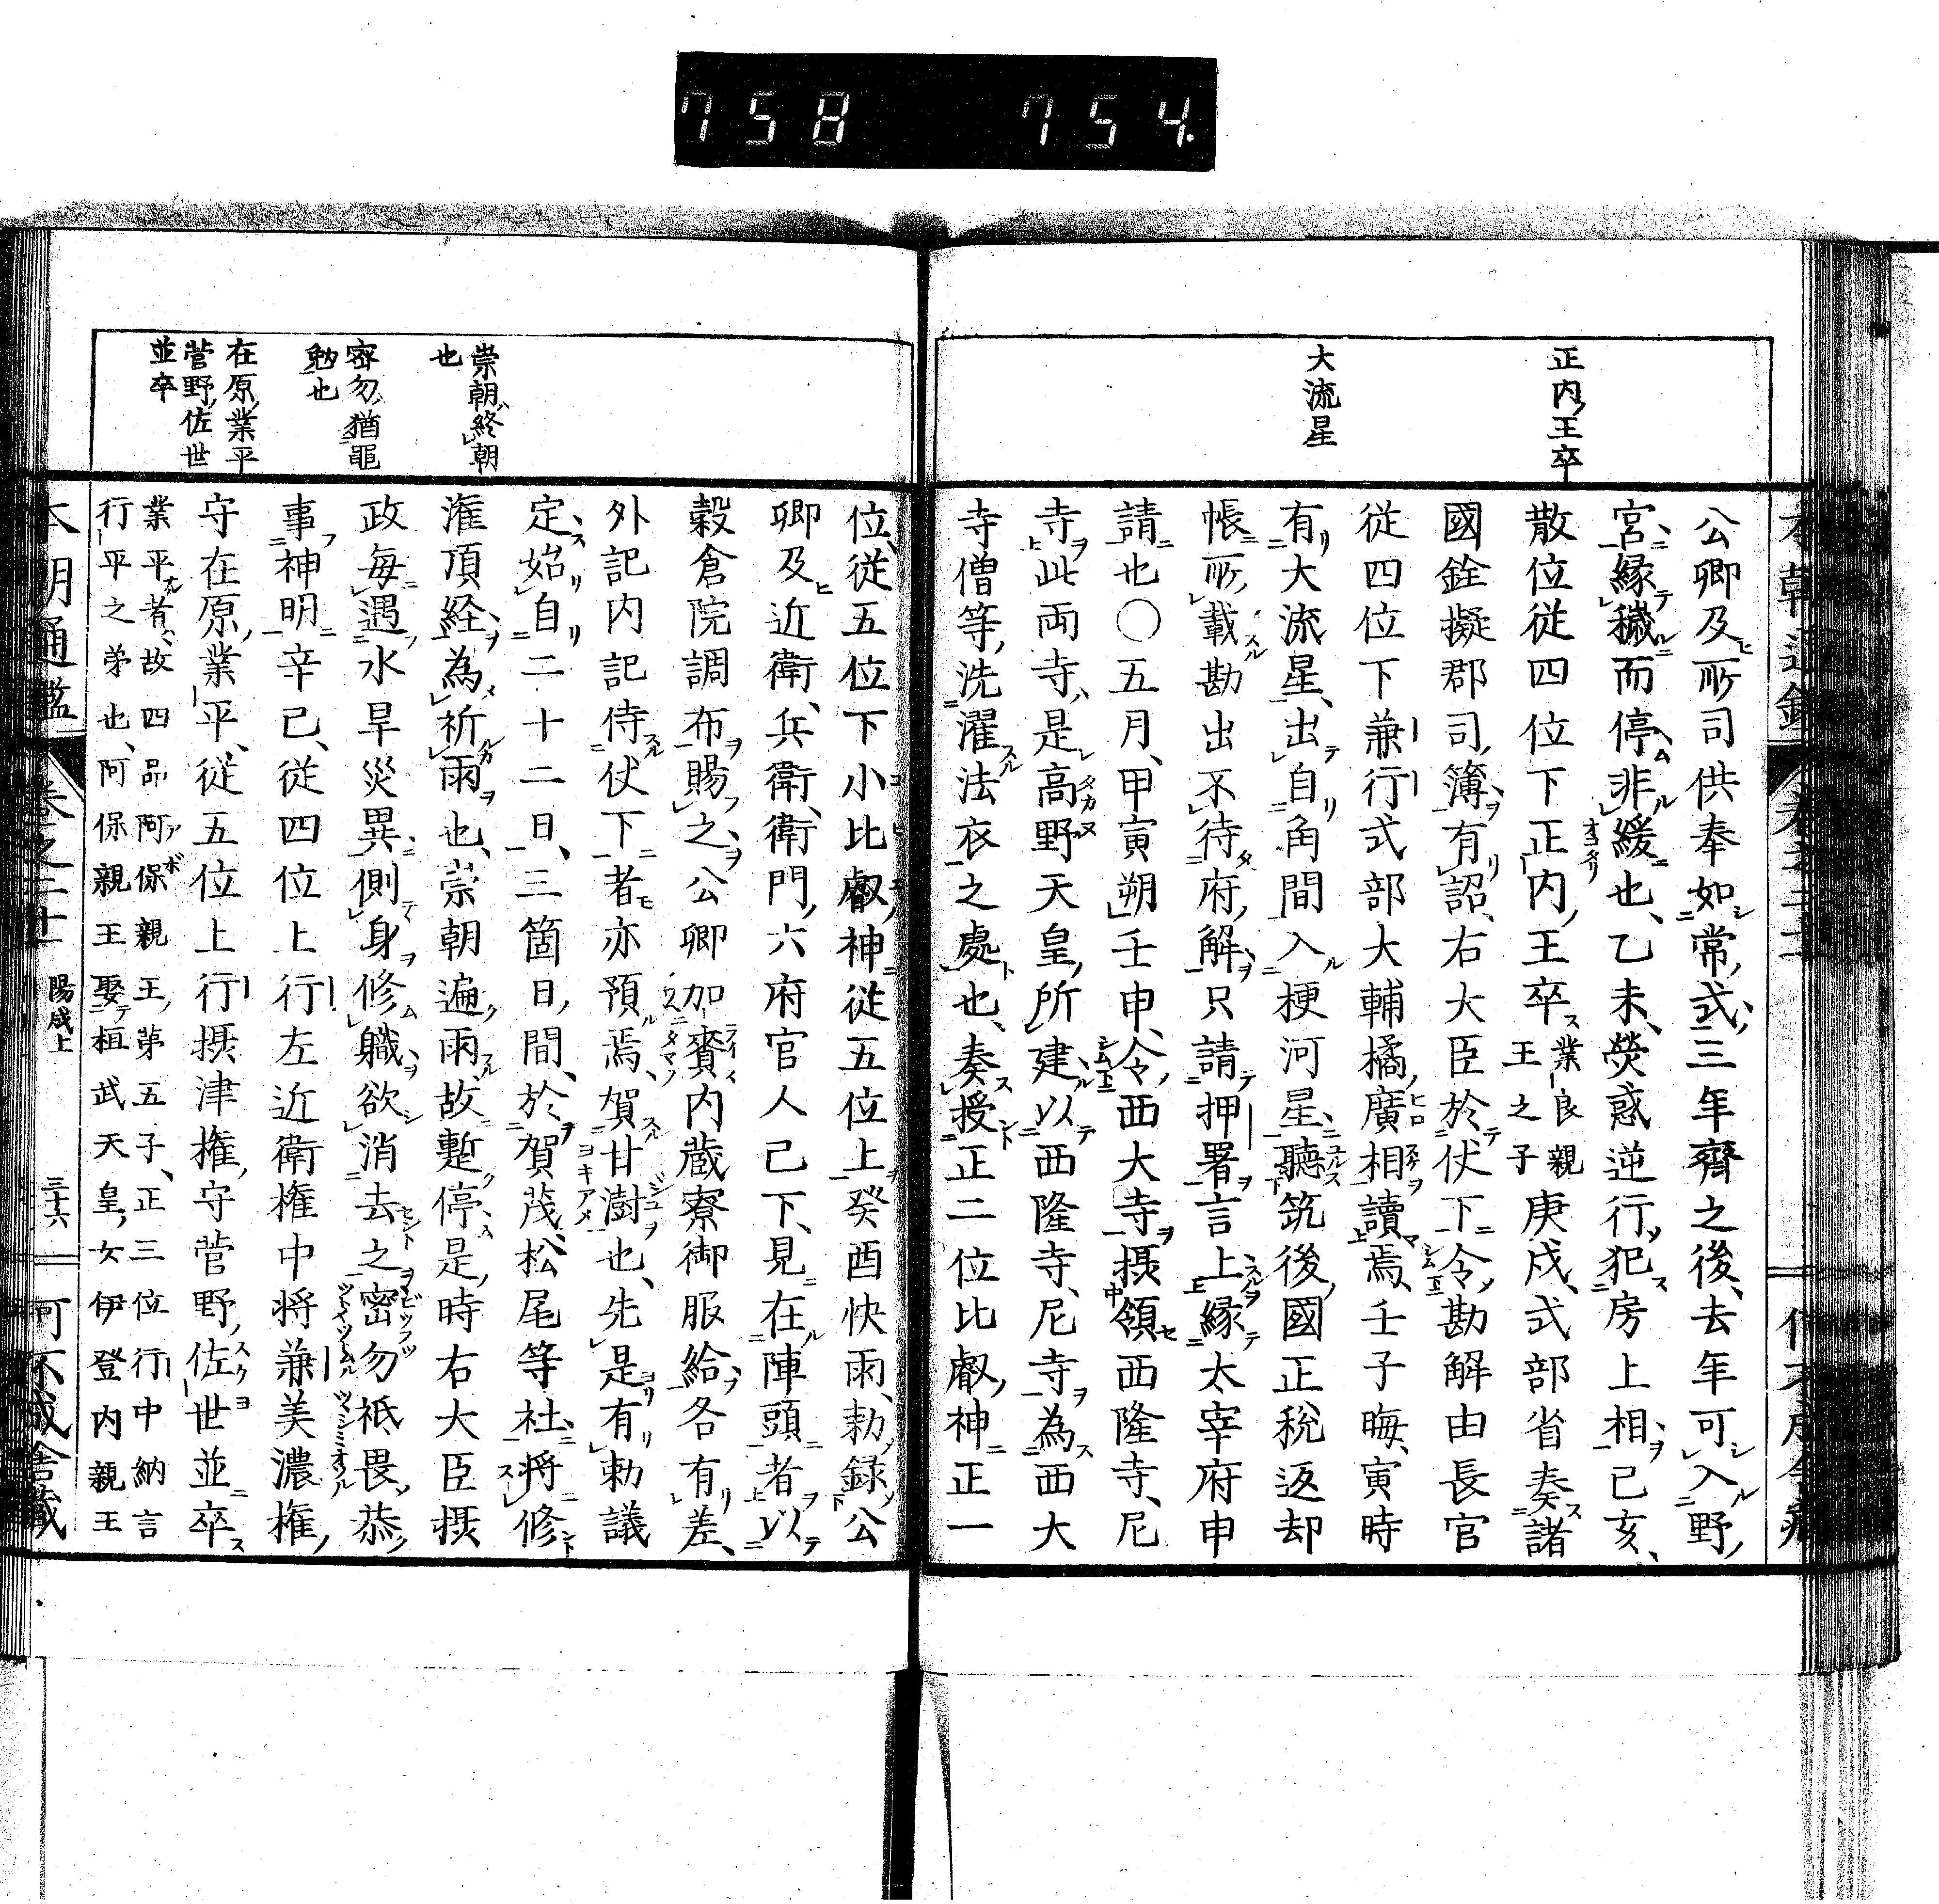 758 754
正内王卒
大流星
公卿及所司供奉如常式三年齊之後去年可入野
宮縁穢而停非緩也乙未熒惑逆行犯房上相己亥
散位從四位下正内王卒業良親王之子庚戌式部省奏諸
國銓擬郡司簿有詔右大臣於仗下令勘解由長官
從四位下兼行式部大輔橘廣相讀焉壬子晦寅時
有大流星出自角間入梗河星聽筑後國正税返却
帳所載勘出不待府解只請押署言上縁太宰府申
請也〇五月甲寅朔壬申令西大寺摂領西隆寺尼
寺此両寺是高野天皇所建以西隆寺尼寺為西大
寺僧等洗濯法衣之處也奏授正二位比叡神正一
崇朝終朝
也
密勿猶黽
勉也
在原業平
菅野佐世
並卒
位從五位下小比叡神從五位上癸酉快雨勅録公
卿及近衛兵衛衛門六府官人己下見在陣頭者以
穀倉院調布賜之公卿加賚内蔵寮御服給各有差
外記内記侍仗下者亦預焉賀甘澍也先是有勅議
定始自二十二日三箇日間於賀茂松尾等社将修
灌頂経為祈雨也崇朝遍雨故蹔停是時右大臣摂
政毎遇水旱災異側身修職欲消去之密勿祇畏恭
事神明辛己從四位上行左近衛権中将兼美濃権
守在原業平從五位上行摂津権守菅野佐世並卒
業平者故四品阿保親王第五子正三位行中納言
行平之弟也阿保親王娶桓武天皇女伊登内親王
本朝通鑑 卷之二十 陽成上 三十六